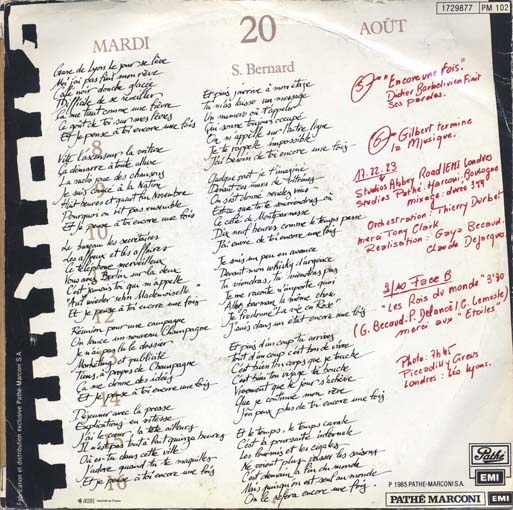 1729877 PM 102
MARDI 20 AOÛT
S. Bernard
Gare de Lyon le jour se lève
Moi j'ai pas fini mon rêve
Café noir douche glacée
Difficile de se réveiller
Le goût de toi sur mes lèvres
Et je pense à toi encore une fois
8
Vite l'ascenseur la voiture
Ça démarre à toute allure
La radio joue des chansons
Je suis coincé à la Nation
Huit heures et quart fin Novembre
Pourquoi on vit pas ensemble
Et je pense à toi encore une fois
10
Le bureau les secrétaires
Les affreux et les affaires
Le téléphone merveilleux
Vous avez Berlin sur la deux
C'est jamais toi qui m'appelle
"Auf wieder sehn Mademoiselle"
Et je pense à toi encore une fois
12
Réunion pour une campagne
On lance un nouveau Champagne
Je n'ai pas lu le dossier
Marketing et publicité
Tiens, à propos de Champagne
Ça me donne des idées
Et je pense à toi encore une fois
14
Déjeuner avec la presse
Explications en vitesse
J'ai le cœur, la tête ailleurs
Il n'est pas tout à fait quinze heures
Où es-tu dans cette ville
J'adore quand tu te maquilles
Et je pense à toi encore une fois
16
Et puis j'arrive à mon étage
Tu m'as laissé un message
Un numéro où t'appeler
Qui sonne toujours occupé
On m'appelle sur l'autre ligne
Je te rappelle impossible
J'ai besoin de toi encore une fois
Quelque part je t'imagine
Devant ces murs de vitrines
On s'est donné rendez-vous
Est-ce que tu te souviendras où
Le café de Montparnasse
Dix neuf heures comme le temps passe
J'ai envie de toi encore une fois
Je suis un peu en avance
Devant mon whisky d'urgence
Tu viendras, tu viendras pas
Je me raconte n'importe quoi
Allez barman la même chose
Je fredonne "La vie en Rose"
J'suis dans un état encore une fois
Et puis d'un coup tu arrives
Tout d'un coup c'est bon de vivre
C'est bien ton corps que je touche
C'est bien ton visage ta bouche
Vivement que le jour s'achève
Que je continue mon rêve
J'en peux plus de toi encore une fois
Et le temps, le temps cavale
C'est la poursuite infernale
Les fourmis et les cigales
Ne voient plus passer les saisons
C'est demain la fin du monde
Mais puisqu'on est seul au monde
On le refera encore une fois
5) "Encore une fois."
Didier Barbelivien Finit
ses paroles.
6) Gilbert termine
la Musique.
17.22.23
Studios Abbey Road/EMI Londres
Studios Pathé Marconi/Boulogne
mixage: durée 3'54
Orchestration: Thierry Durbet
merci Tony Clark
Réalisation: Gaya Bécaud
Claude Dejacques
Face B
"Les Rois du monde" 3'30
(G. Bécaud. P. Delanoë / C. Lemesle)
merci aux "Etoiles"
Photo: 7h45
Piccadilly Circus
Londres: Léo Lyons.
Fabrication et distribution exclusive Pathé-Marconi S.A
Pathé
EMI
P 1985 PATHE-MARCONI S.A.
PATHÉ MARCONI EMI